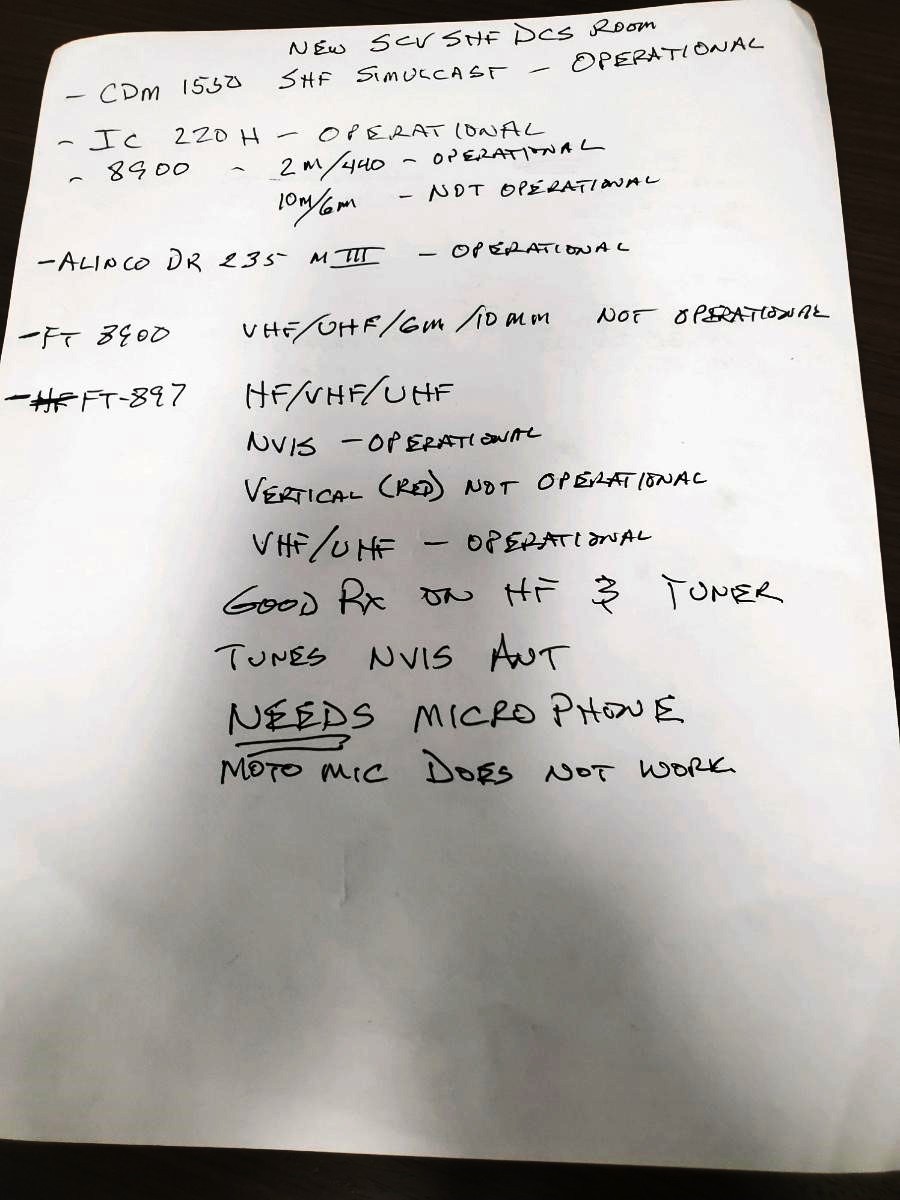 NEW SCV SHF DCS ROOM
- CDM 1550 SHF SIMULCAST - OPERATIONAL
- IC 220H - OPERATIONAL
- 8900 - 2M/440 - OPERATIONAL
10M/6M - NOT OPERATIONAL
- ALINCO DR 235 MIII - OPERATIONAL
- FT 8900 VHF/UHF/6M/10MM NOT OPERATIONAL
- HF FT-897 HF/VHF/UHF
NVIS - OPERATIONAL
VERTICAL (RED) NOT OPERATIONAL
VHF/UHF - OPERATIONAL
GOOD RX ON HF & TUNER
TUNES NVIS ANT
NEEDS MICROPHONE
MOTO MIC DOES NOT WORK